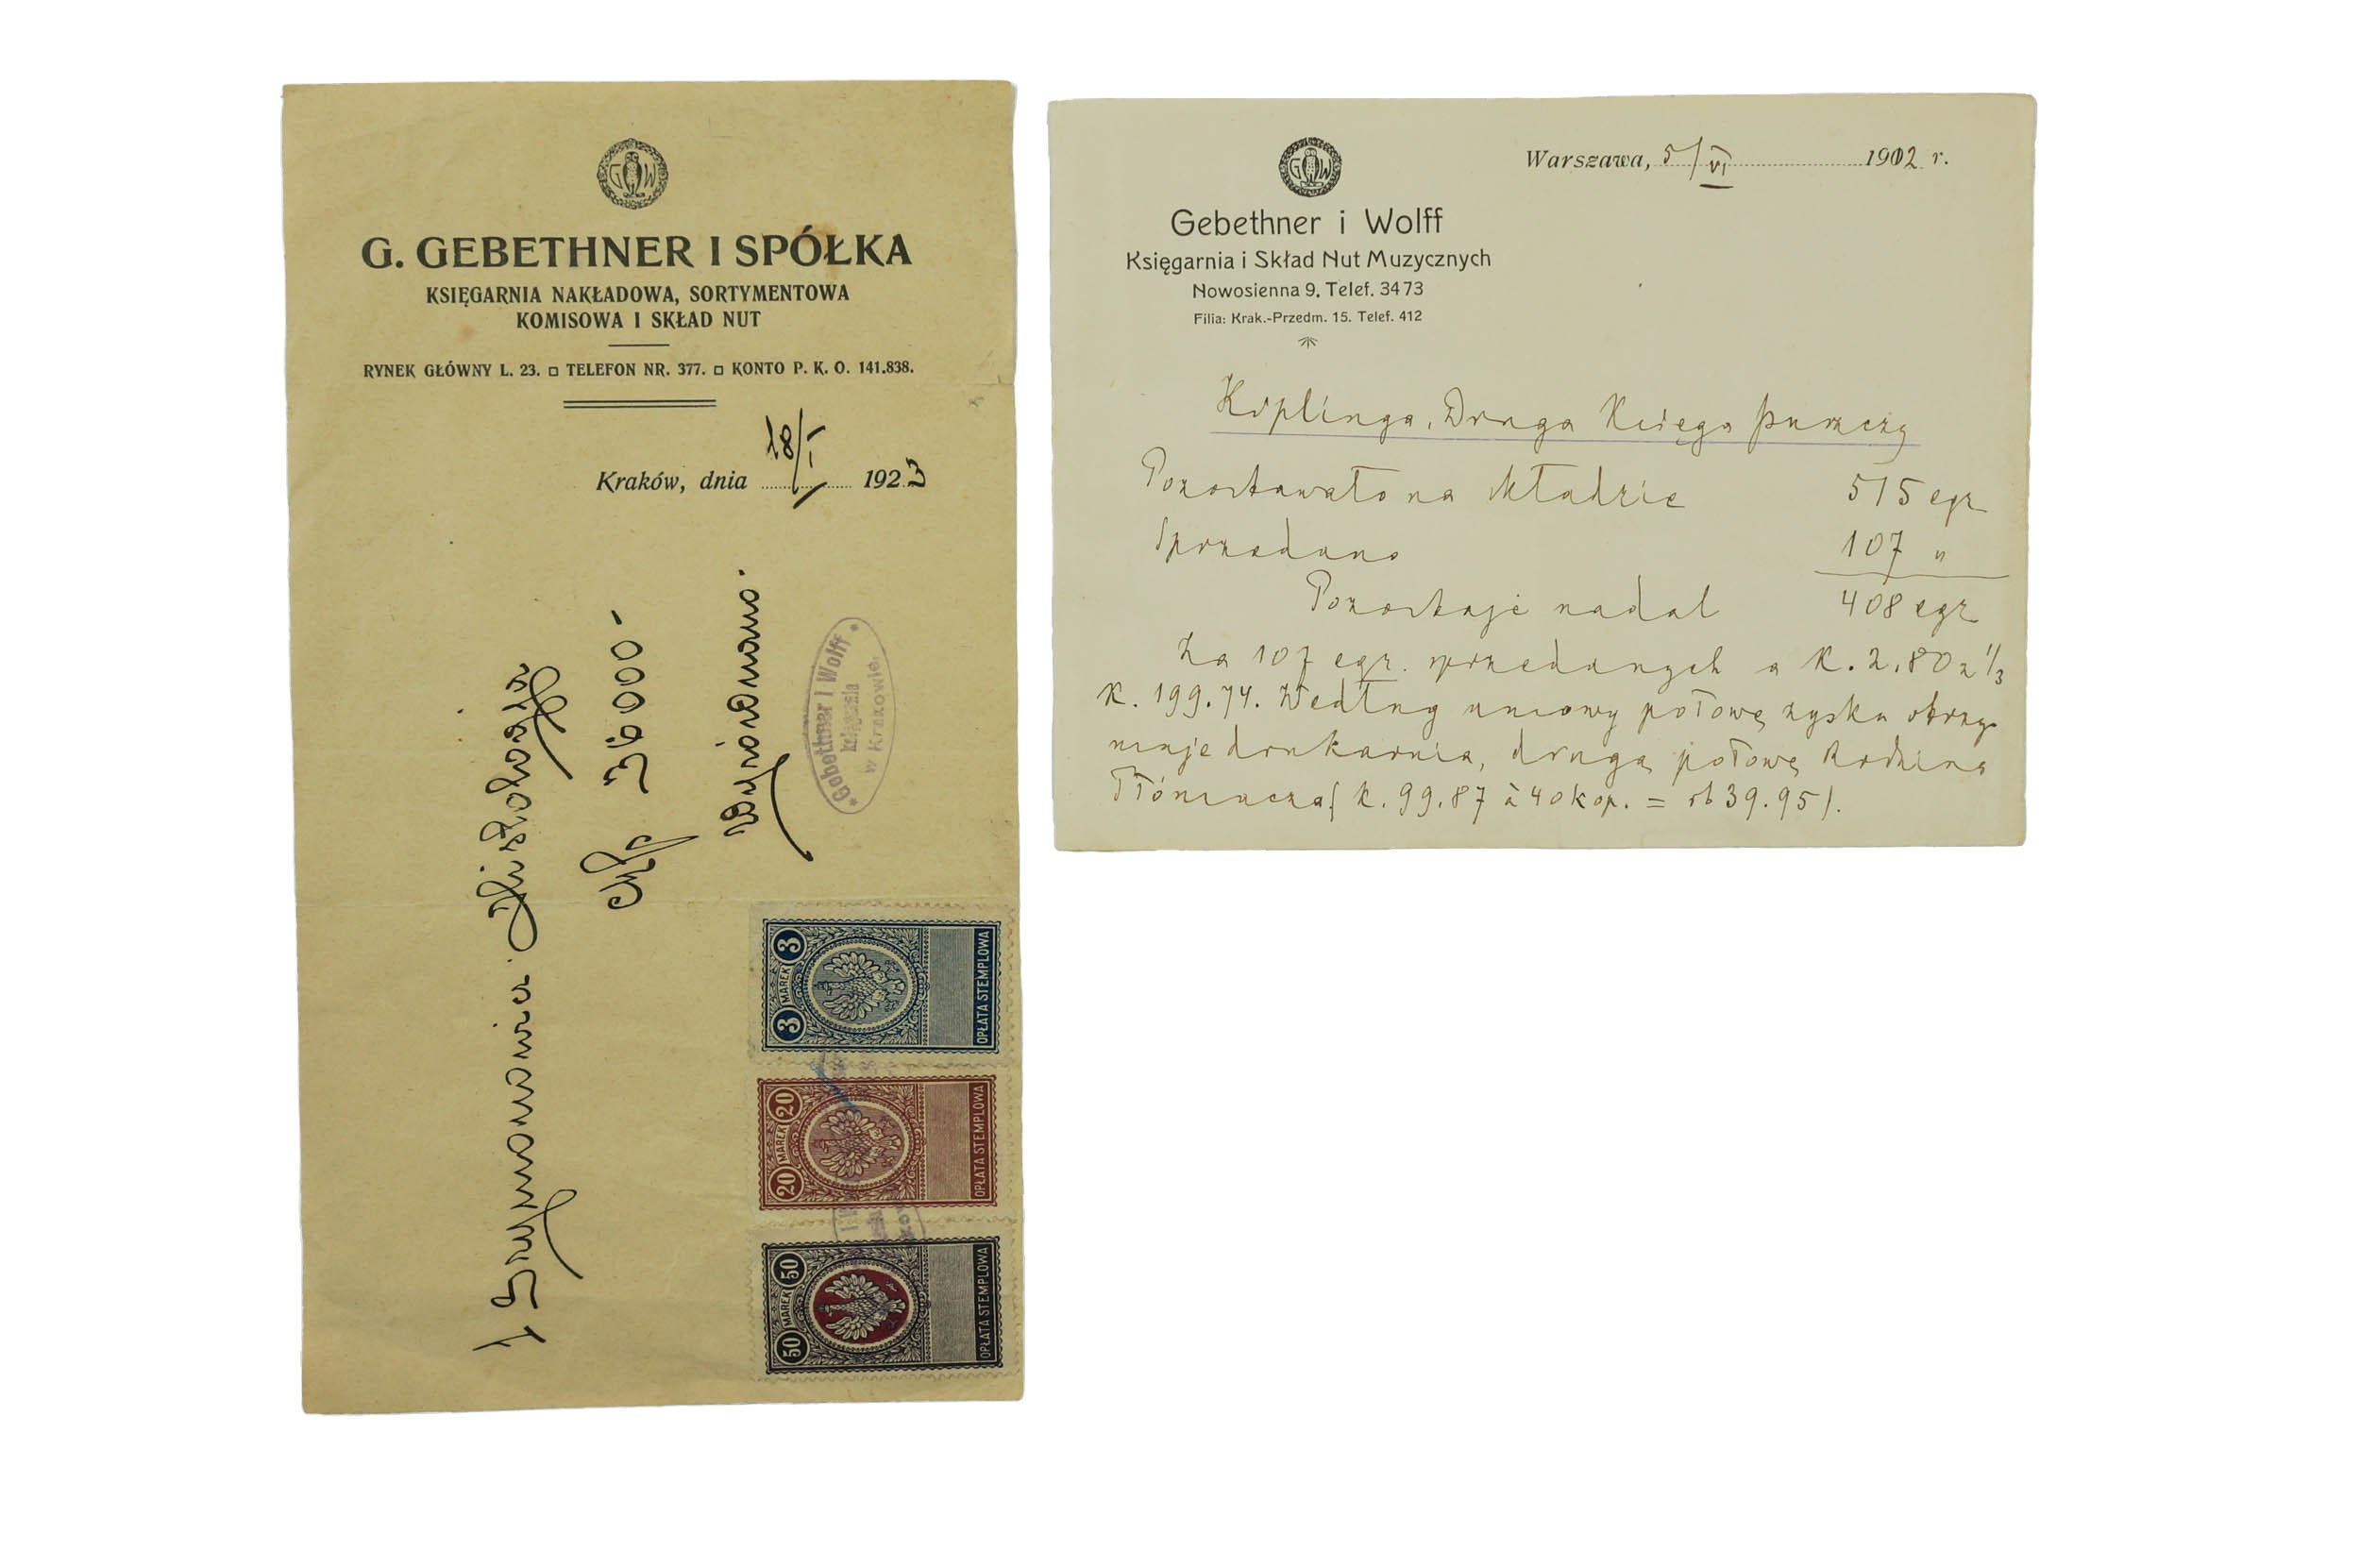 G W
G. GEBETHNER I SPÓŁKA
KSIĘGARNIA NAKŁADOWA, SORTYMENTOWA
KOMISOWA I SKŁAD NUT
RYNEK GŁÓWNY L. 23. □ TELEFON NR. 377. □ KONTO P. K. O. 141.838.
Kraków, dnia 18/I 1923
1 Szymonowicz
Mp 36000 -
Wyrównano.
* Gebethner i Wolff *
księgarnia
w Krakowie.
3 MAREK 3
OPŁATA STEMPLOWA
20 MAREK 20
OPŁATA STEMPLOWA
50 MAREK 50
OPŁATA STEMPLOWA
G W
Warszawa, 5/VI 1912 r.
Gebethner i Wolff
Księgarnia i Skład Nut Muzycznych
Nowosienna 9. Telef. 3473
Filia: Krak.-Przedm. 15. Telef. 412
Kiplinga, Druga Księga puszczy
Pozostawało na składzie 515 egz
Sprzedano 107 "
Pozostaje nadal 408 egz
Za 107 egz. sprzedanych a K. 2.80 z 1/3
K. 199.74. Według umowy połowę zysku otrzy-
muje drukarnia, drugą połowę Rodzina
Tłómacza (K. 99.87 à 40 kop. = rb 39.95).